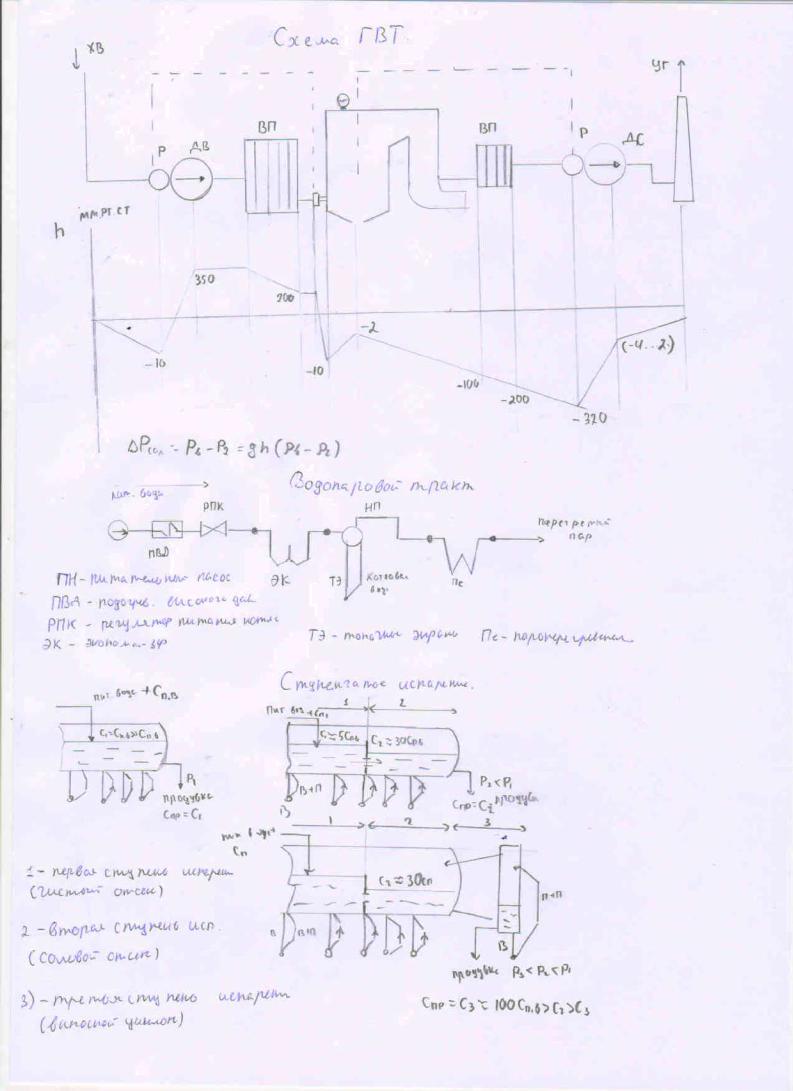 Схема ГВТ
ХВ
УГ
Р
ДВ
ВП
ВП
Р
ДС
h
мм.рт.ст
350
200
-10
-10
-2
-100
-200
-320
(-4...2)
Водопаровой тракт
пит. вода
РПК
НП
перегретый
пар
ПВД
ЭК
ТЭ
Котловая
вода
Пе
ПН - питательный насос
ПВД - подогрев. высокого дав
РПК - регулятор питания котла
ЭК - эконом-зер
ТЭ - топочные экраны
Пе - пароперегреватель
Ступенчатое испарение.
пит вода + Сп.в
Р₁
продувка
Спр = С₁
1
2
Пит вод + Сп
С₁ ≈ 5Сп.в
С₂ ≈ 30Сп.в
В+П
В
Р₂ < Р₁
продувка
1
2
3
Сп
С₂ ≈ 30Сп
В
В+П
П+П
В
продувка Р₃ < Р₂ < Р₁
Спр = С₃ ≈ 100 Сп.в > С₂ > С₃
1 - первая ступень испарен
(чистый отсек)
2 - вторая ступень исп.
(солевой отсек)
3) - третья ступень испарен
(выносной циклон)